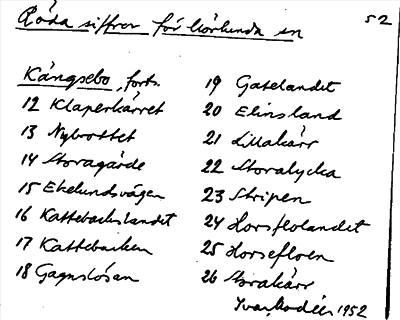 Röda siffror för Hörlunda sn
52
Kängsebo, forts.
12 Klaperkärret
13 Nybrottet
14 Storagärde
15 Ekelundsvägen
16 Kattebackslandet
17 Kattebacken
18 Gagnslösan
19 Gatelandet
20 Elinsland
21 Lillakärr
22 Storalycka
23 Stripen
24 Horsflolandet
25 Horsefloen
26 kärr
Ivar Modéer 1952